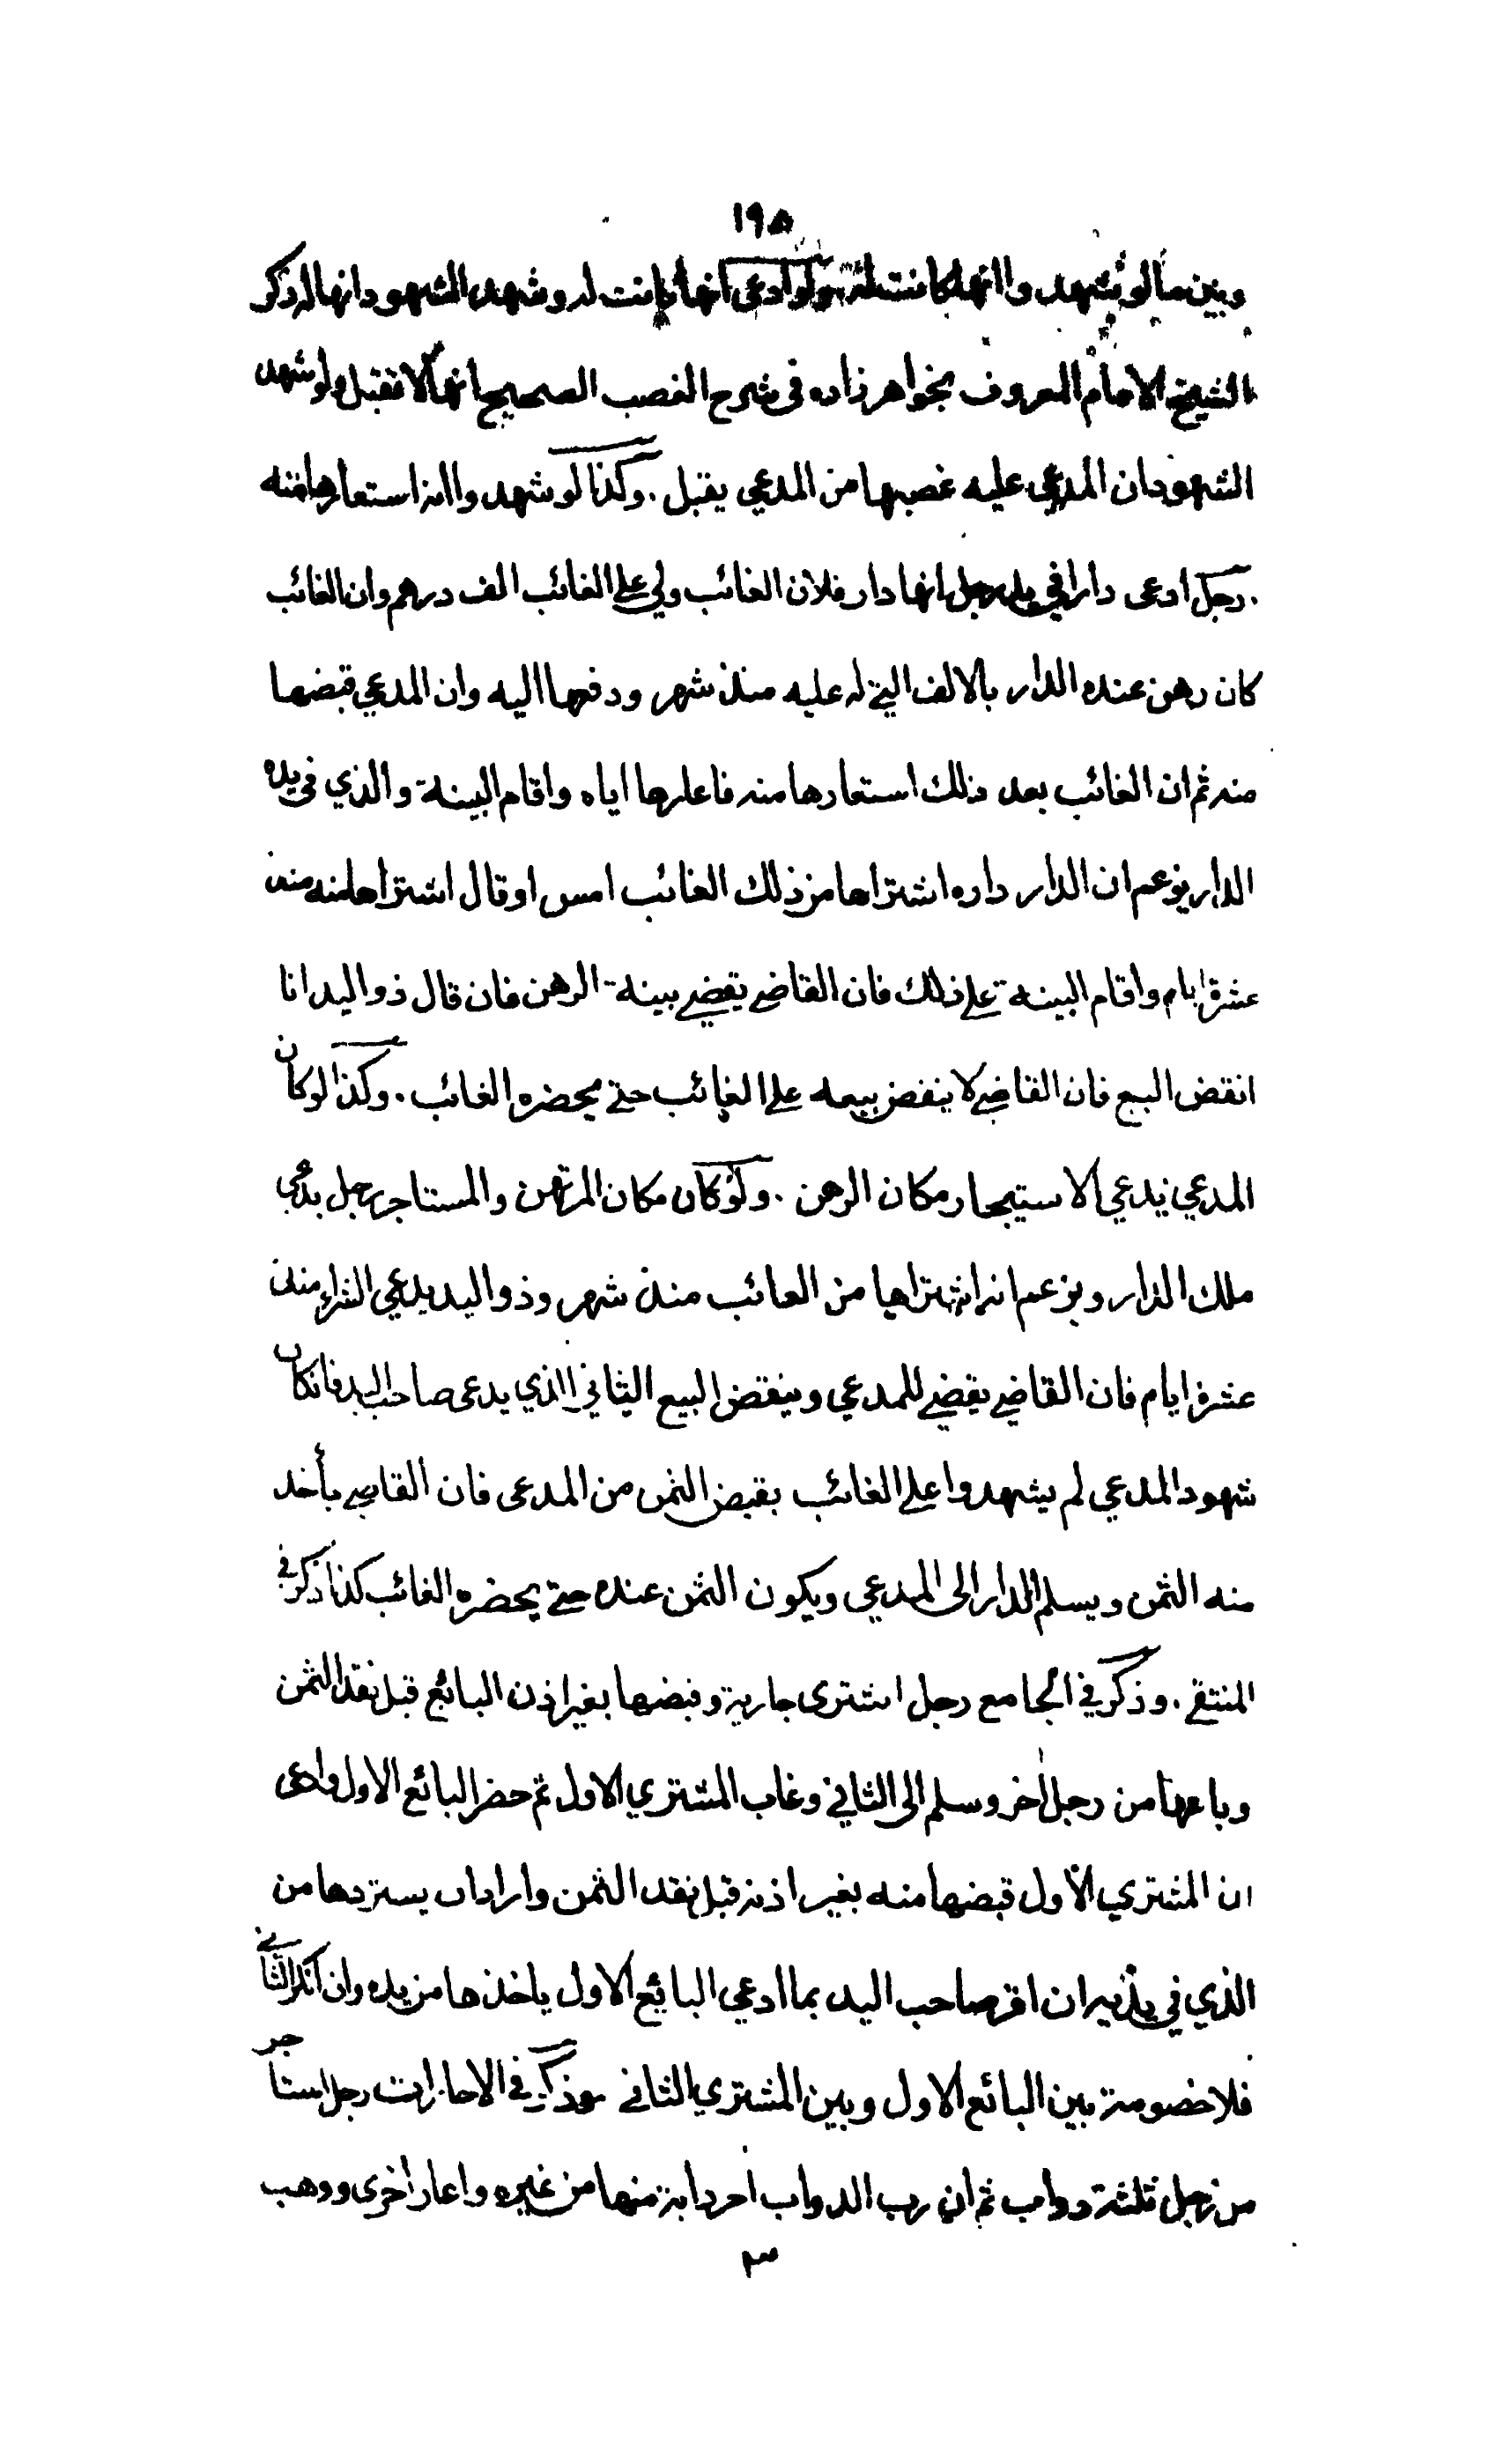 ١٩٥
وبين ما لو شهدوا انها كانت له ولو ادعى انها كانت له وشهد الشهود انها له ذكر
الشيخ الامام المعروف بخواهر زاده فى شرح الغصب الصحيح انها لا تقبل ولو شهد
الشهود ان المدعى عليه غصبها من المدعي يقبل . وكذا لو شهدوا انه استعارها منه
. رجل ادعى دارا في يد رجل انها دار فلان الغائب ولي على الغائب الف درهم وان الغائب
كان رهن عنده الدار بالالف التي له عليه منذ شهر ودفعها اليه وان المدعي قبضها
منه ثم ان الغائب بعد ذلك استعارها منه فاعارها اياه واقام البينة والذي في يده
الدار يزعم ان الدار داره اشتراها من ذلك الغائب امس او قال اشتراها منه منذ
عشرة ايام واقام البينة على ذلك فان القاضي يقضي ببينة الرهن فان قال ذو اليد انا
انقض البيع فان القاضي لا ينقض بيعه على الغائب حتى يحضره الغائب . وكذا لو كان
المدعي يدعي الاستيجار مكان الرهن . ولو كان مكان المرتهن والمستاجر رجل يدعي
ملك الدار ويزعم انه اشتراها من الغائب منذ شهر وذو اليد يدعي الشراء منذ
عشرة ايام فان القاضي يقضي للمدعي وينقض البيع الثاني الذي يدعى صاحب اليد فان كان
شهود المدعي لم يشهدوا على الغائب بقبض الثمن من المدعى فان القاضي يأخذ
منه الثمن ويسلم الدار الى المدعي ويكون الثمن عنده حتى يحضره الغائب كذا ذكر في
المنتقى . وذكر في الجامع رجل اشترى جارية وقبضها بغير اذن البائع قبل نقد الثمن
وباعها من رجل اخر وسلم الى الثاني وغاب المشتري الاول ثم حضر البائع الاول وادعى
ان المشتري الاول قبضها منه بغير اذنه قبل نقد الثمن واراد ان يستردها من
الذي في يديه ان اقر صاحب اليد بما ادعي البايع الاول ياخذها من يده وان انكر الثاني
فلا خصومة بين البائع الاول وبين المشتري الثاني وذكر في الاجارات رجل استاجر
من رجل ثلثة دواب ثم ان رب الدواب اجر دابة منها من غيره واعار اخرى ووهب
٣